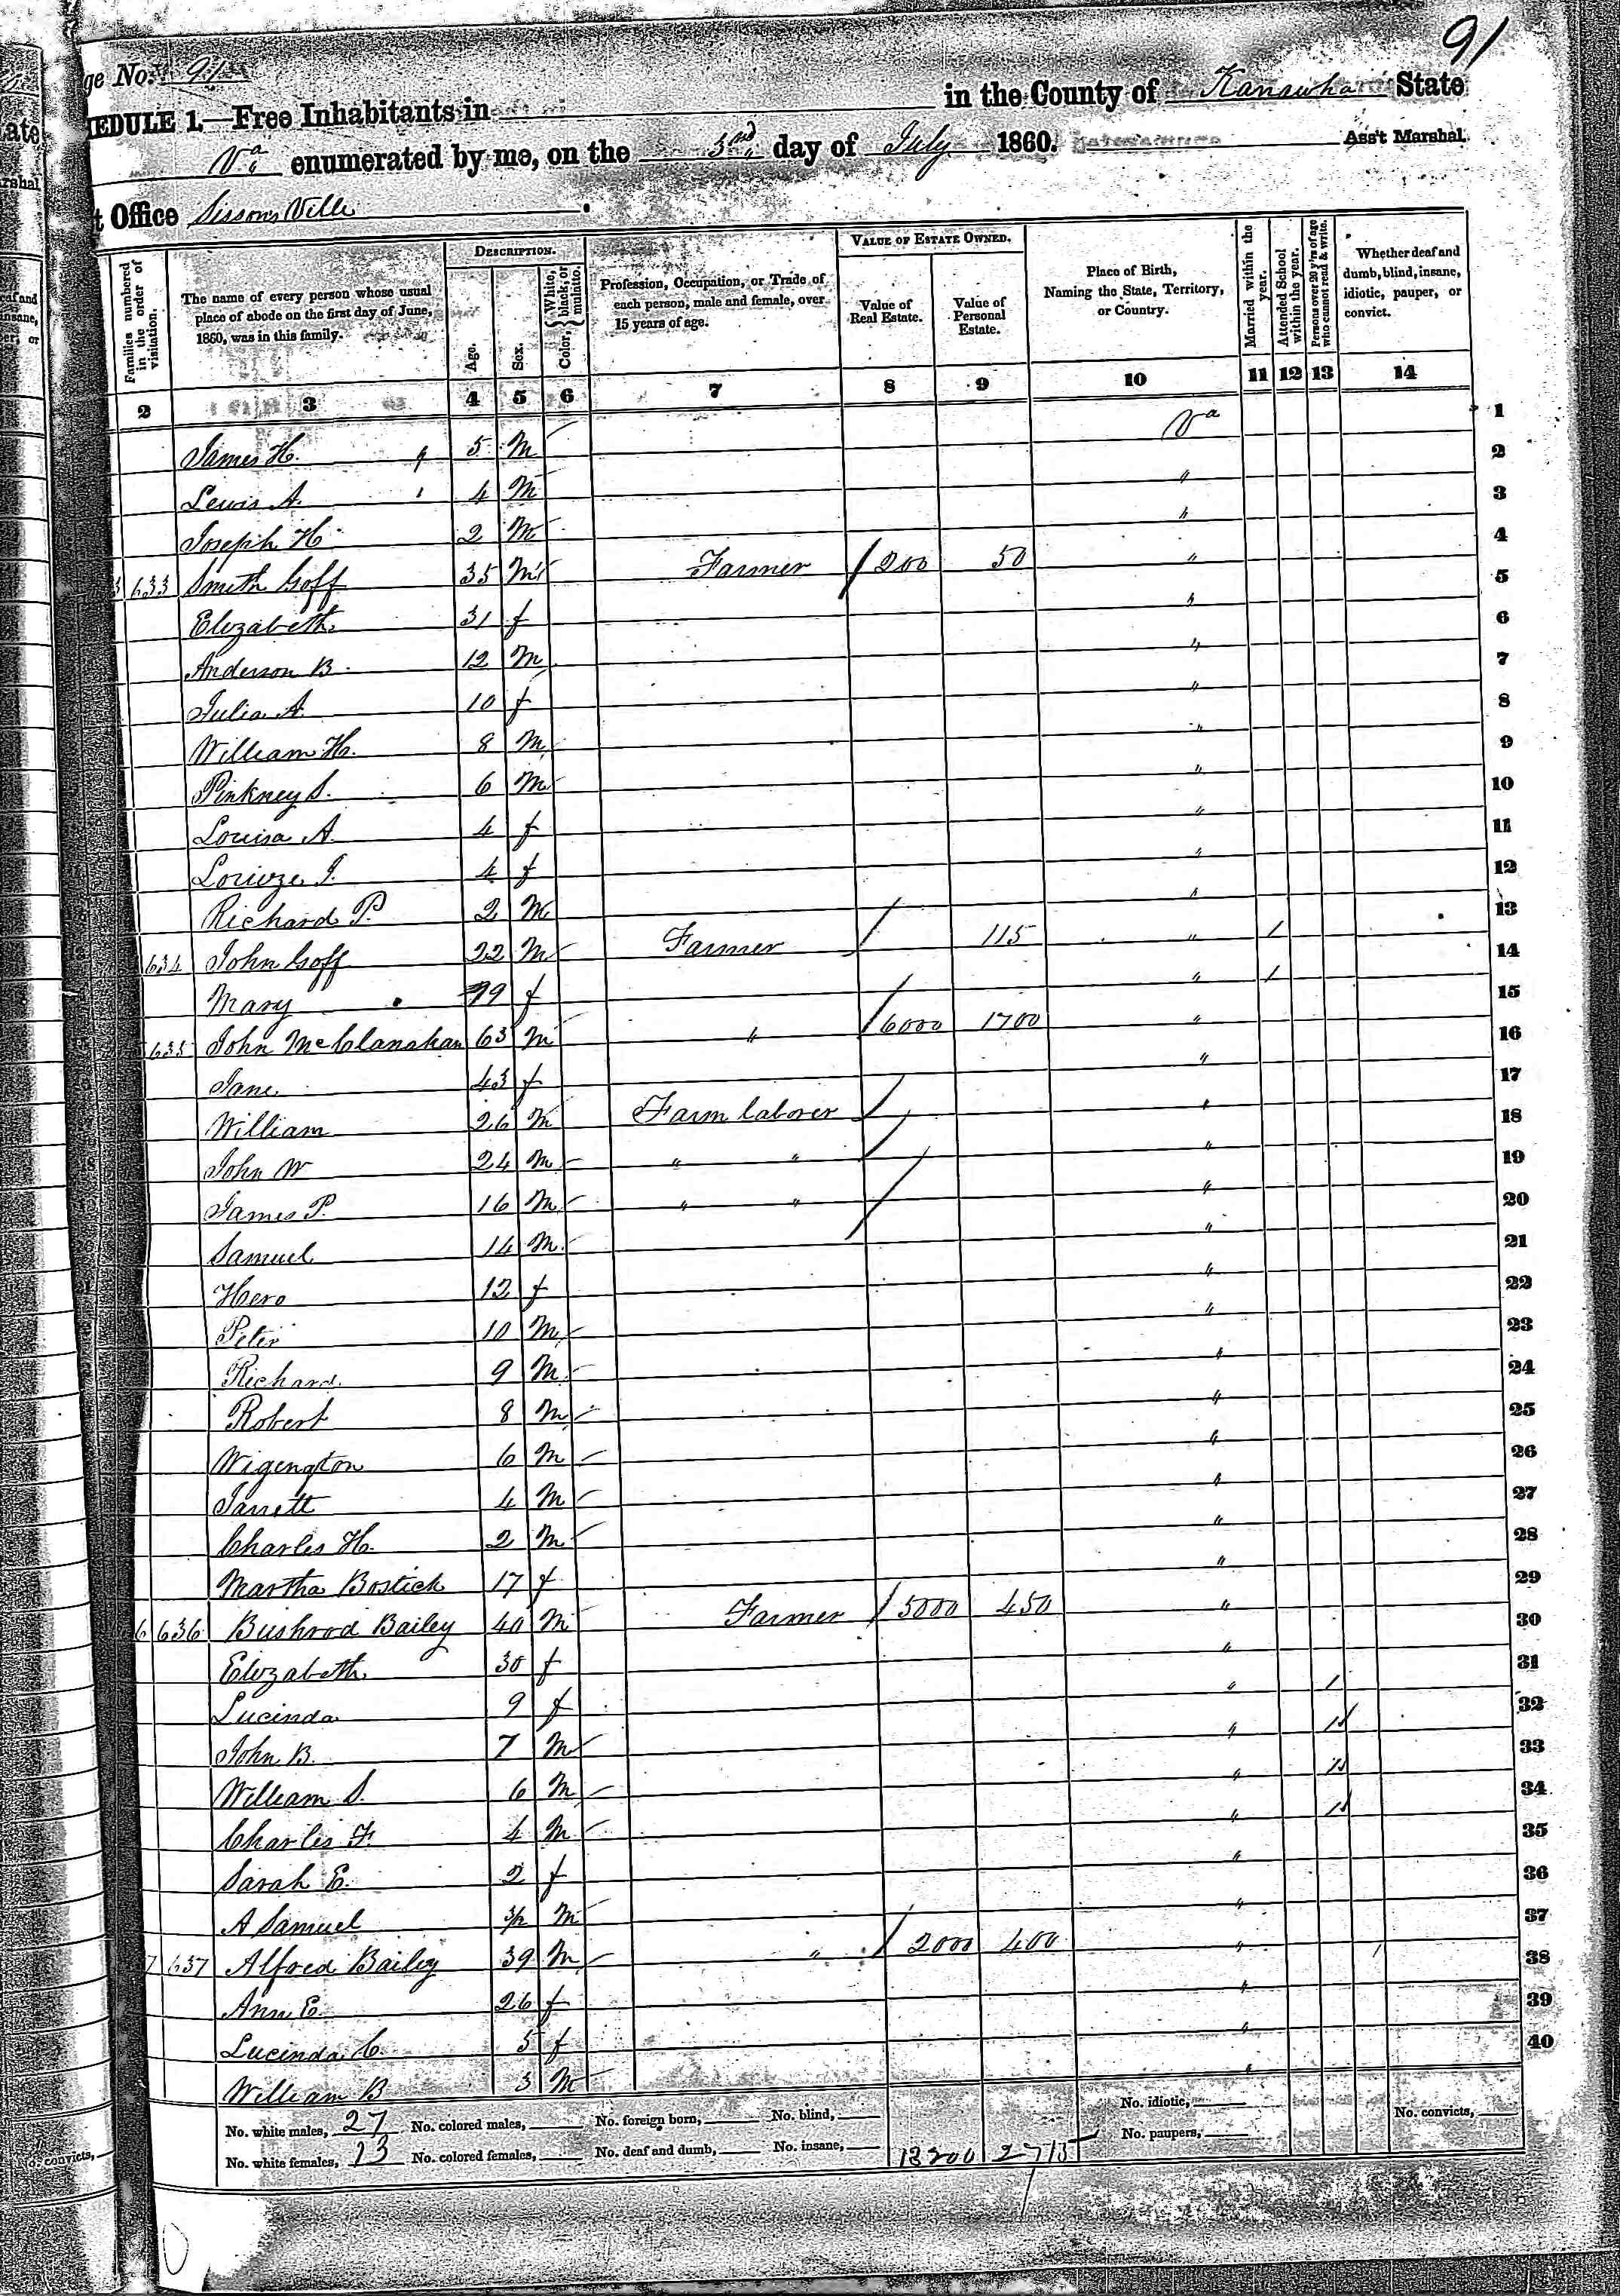 91
ge No. 91
EDULE 1.—Free Inhabitants in in the County of Kanawha State
Va enumerated by me, on the 3rd day of July 1860. Ass't Marshal.
t Office Sissons Ville
Families numbered in the order of visitation.
The name of every person whose usual place of abode on the first day of June, 1860, was in this family.
DESCRIPTION.
Age.
Sex.
Color, White, black, or mulatto.
Profession, Occupation, or Trade of each person, male and female, over 15 years of age.
VALUE OF ESTATE OWNED.
Value of Real Estate.
Value of Personal Estate.
Place of Birth, Naming the State, Territory, or Country.
Married within the year.
Attended School within the year.
Persons over 20 y'rs of age who cannot read & write.
Whether deaf and dumb, blind, insane, idiotic, pauper, or convict.
2 3 4 5 6 7 8 9 10 11 12 13 14
James H. 5 M Va 1
Lewis A. 4 M " 2
Joseph H. 2 M " 3
3 633 Smith Goff 35 M Farmer / 200 50 " 4
Elizabeth 31 f " 5
Anderson B. 12 M " 6
Julia A. 10 f " 7
William H. 8 M " 8
Pinkney S. 6 M " 9
Louisa A. 4 f " 10
J. 4 f " 11
Richard P. 2 M " 12
634 John Goff 22 M Farmer / 115 " / 13
Mary 19 f " / 14
635 John McClanahan 63 M " / 6000 1700 " 15
Jane 43 f " 16
William 26 M Farm laborer / " 17
John W 24 M " " / " 18
James P. 16 M " " / " 19
Samuel 14 M " 20
Hero 12 f " 21
Peter 10 M " 22
Richard 9 M " 23
Robert 8 M " 24
Wigengton 6 M " 25
Jarrett 4 M " 26
Charles H. 2 M " 27
Martha Bostick 17 f " 28
6 636 Bushrod Bailey 40 M Farmer / 5000 450 " 29
Elizabeth 30 f " 30
Lucinda 9 f " / 31
John B. 7 M " 32
William S. 6 M " 33
Charles F. 4 M " 34
Sarah E. 2 f " 35
A Samuel M " 36
7 637 Alfred Bailey 39 M " / 2000 400 " 37
Ann E. 26 f " 38
Lucinda C. 5 f " 39
William B 3 M " 40
No. white males, 27 No. colored males, No. foreign born, No. blind, No. idiotic, No. convicts,
No. white females, 13 No. colored females, No. deaf and dumb, No. insane, 13200 2715 No. paupers,
o. convicts,